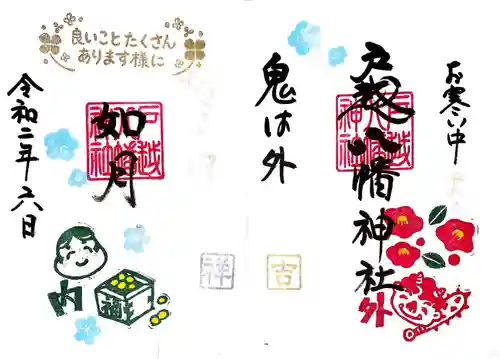 お寒い中
戸越八幡神社
外
鬼は外
吉
良いことたくさん
あります様に
戸越八幡神社
如月
令和二年六日
内
福
祥